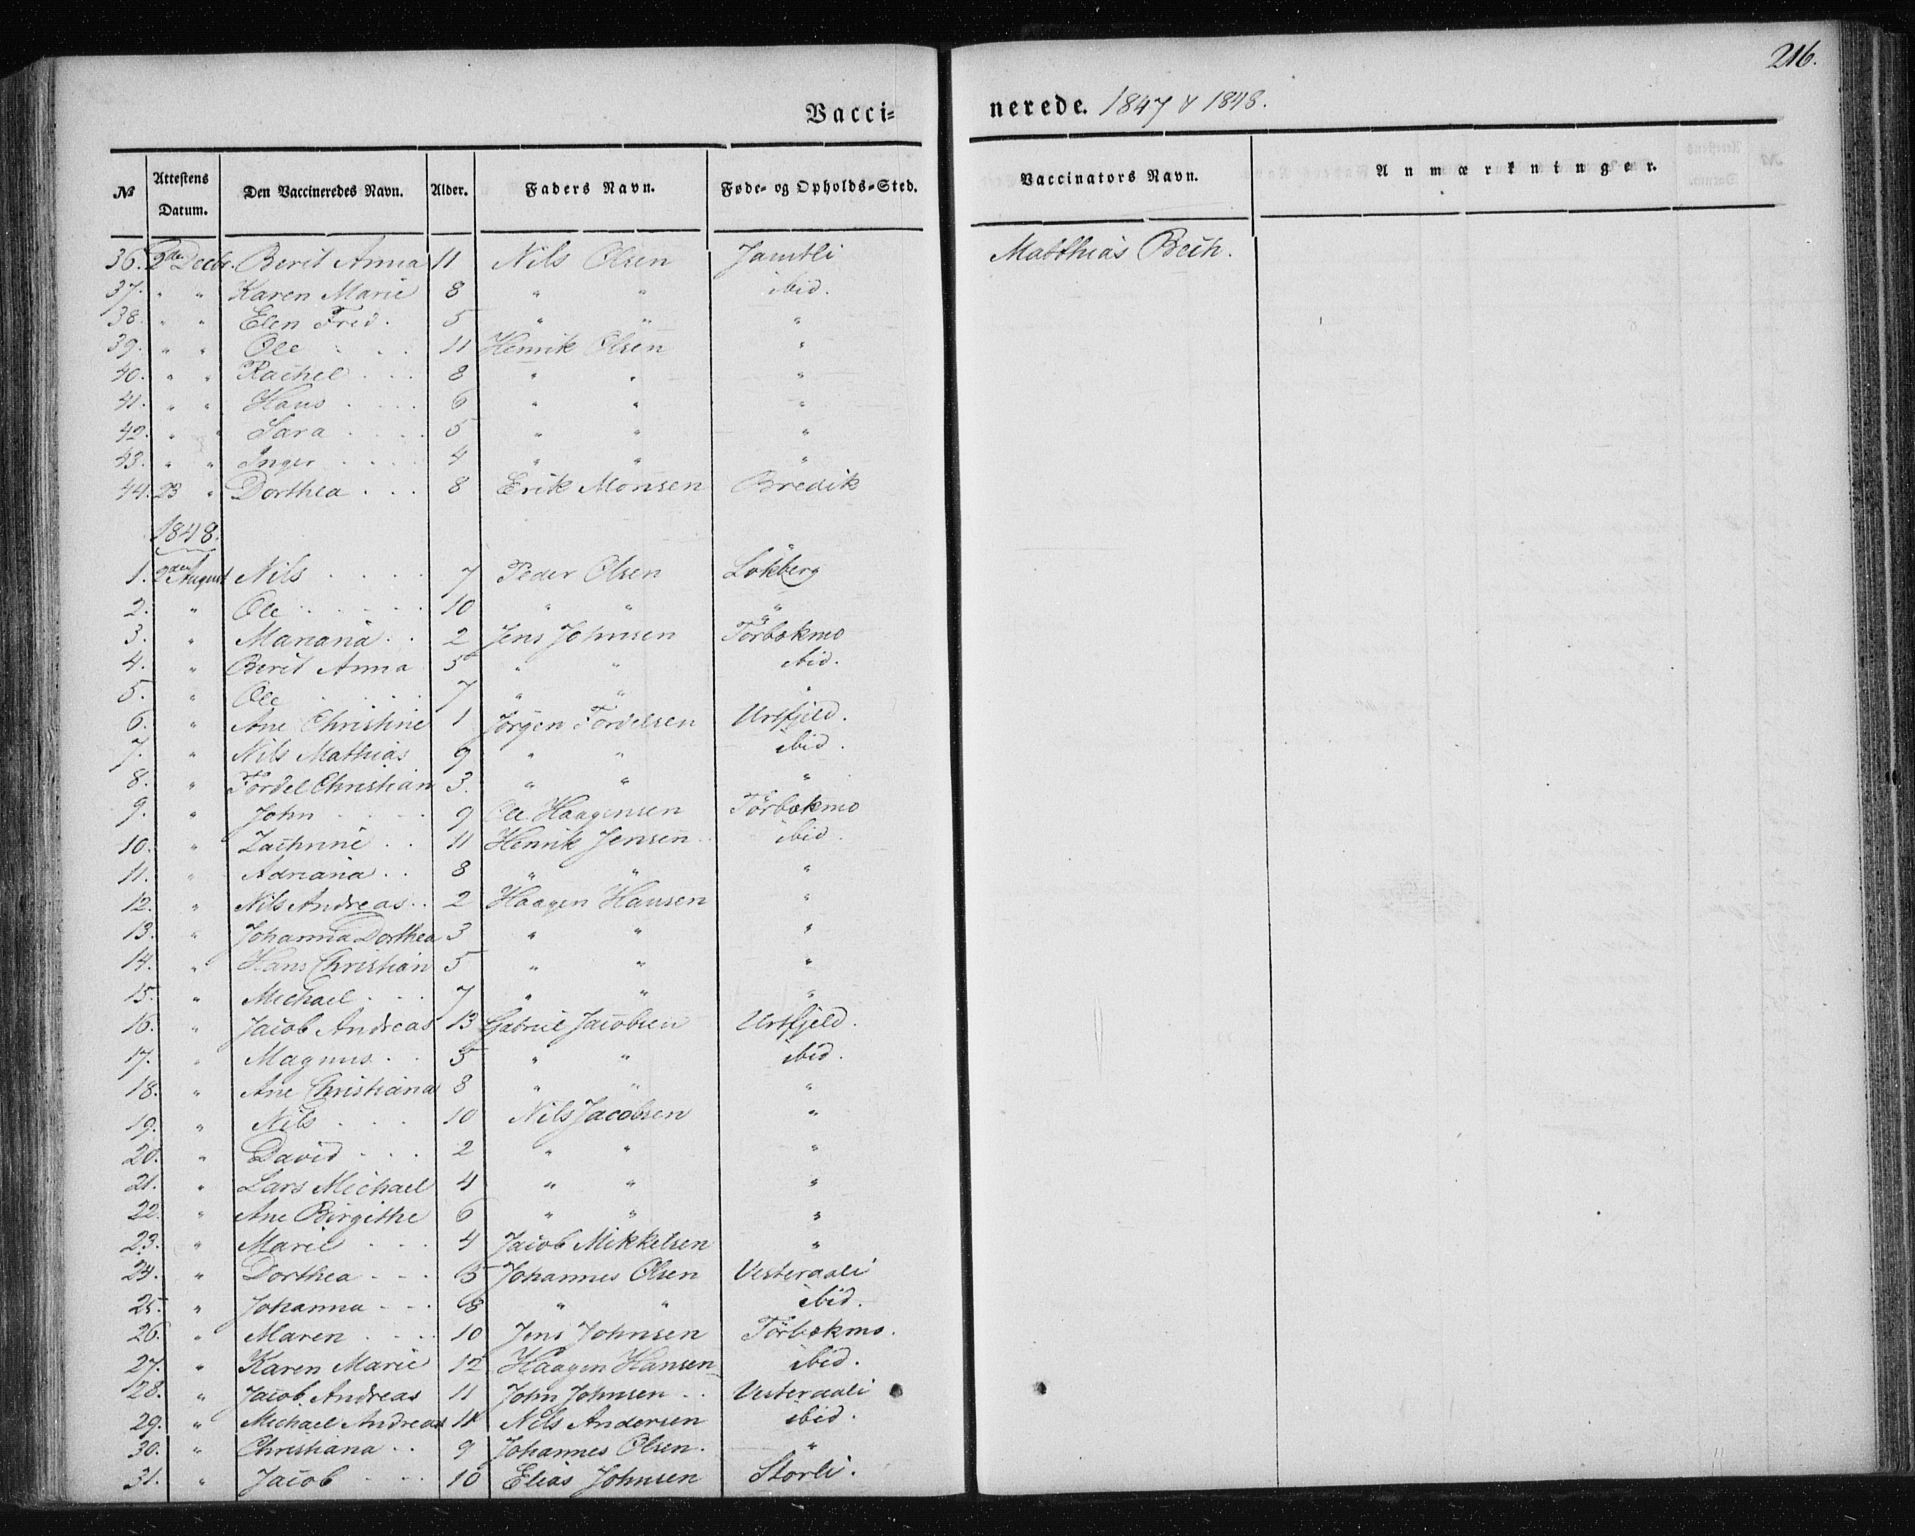 216.
Vaccinerede. 1847 & 1848.
№ | Attestens Datum. | Den Vaccineredes Navn. | Alder. | Faders Navn. | Føde- og Opholds-Sted. | Vaccinators Navn. | Anmærkninger.
36. | 2den Decbr. | Berit Anna | 11 | Nils Olsen | Jamtli | Matthias Bech.
37. | " " | Karen Marie | 8 | " " | ibid.
38. | " " | Elen Fred. | 5 | " " | "
39. | " " | Ole | 11 | Henrik Olsen | "
40. | " " | Rachel | 8 | " " | "
41. | " " | Hans | 6 | " " | "
42. | " " | Sara | 5 | " " | "
43. | " " | Inger | 4 | " " | "
44. | 23 " | Dorthea | 8 | Erik Monsen | Bredik
1848.
1. | 2den August | Nils | 7 | Peder Olsen | Løkberg
2. | " | Ole | 10 | " " | "
3. | " | Mariana | 2 | Jens Johnsen | Tørbækmo
4. | " | Berit Anna | 5 | " " | ibid.
5. | " | Ole | 7 | " " | "
6. | " | Ane Christine | 1 | Jørgen Tordelsen | Urtfjeld.
7. | " | Nils Mathias | 9 | " " | ibid.
8. | " | Tordel Christian | 3. | " " | "
9. | " | John | 9 | Ole Haagensen | Tørbækmo
10. | " | Zachrine | 11 | Henrik Jensen | ibid.
11. | " | Adriana | 8 | " " | "
12. | " | Nils Andreas | 2 | Haagen Hansen | "
13. | " | Johanna Dorthea | 3 | " " | "
14. | " | Hans Christian | 5 | " " | "
15. | " | Michael | 7 | " " | "
16. | " | Jacob Andreas | 13 | Gabriel Jacobsen | Urtfjeld.
17. | " | Magnus | 5 | " " | ibid.
18. | " | Ane Christiana | 8 | " " | "
19. | " | Nils | 10 | Nils Jacobsen | "
20. | " | David | 2 | " " | "
21. | " | Lars Michael | 4 | " " | "
22. | " | Ane Birgithe | 6 | " " | "
23. | " | Marie | 4 | Jacob Mikkelsen | "
24. | " | Dorthea | | Johannes Olsen | Vesteraali
25. | " | Johanna | | " " | ibid.
26. | " | Maren | 10 | Jens Johnsen | Tørbækmo.
27. | " | Karen Marie | 12 | Haagen Hansen | ibid.
28. | " | Jacob Andreas | 11 | John Johnsen | Vesteraali
29. | " | Michael Andreas | 11 | Nils Andersen | ibid.
30. | " | Christiana | 9 | Johannes Olsen. | "
31. | " | Jacob | 10 | Elias Johnsen | Storli.